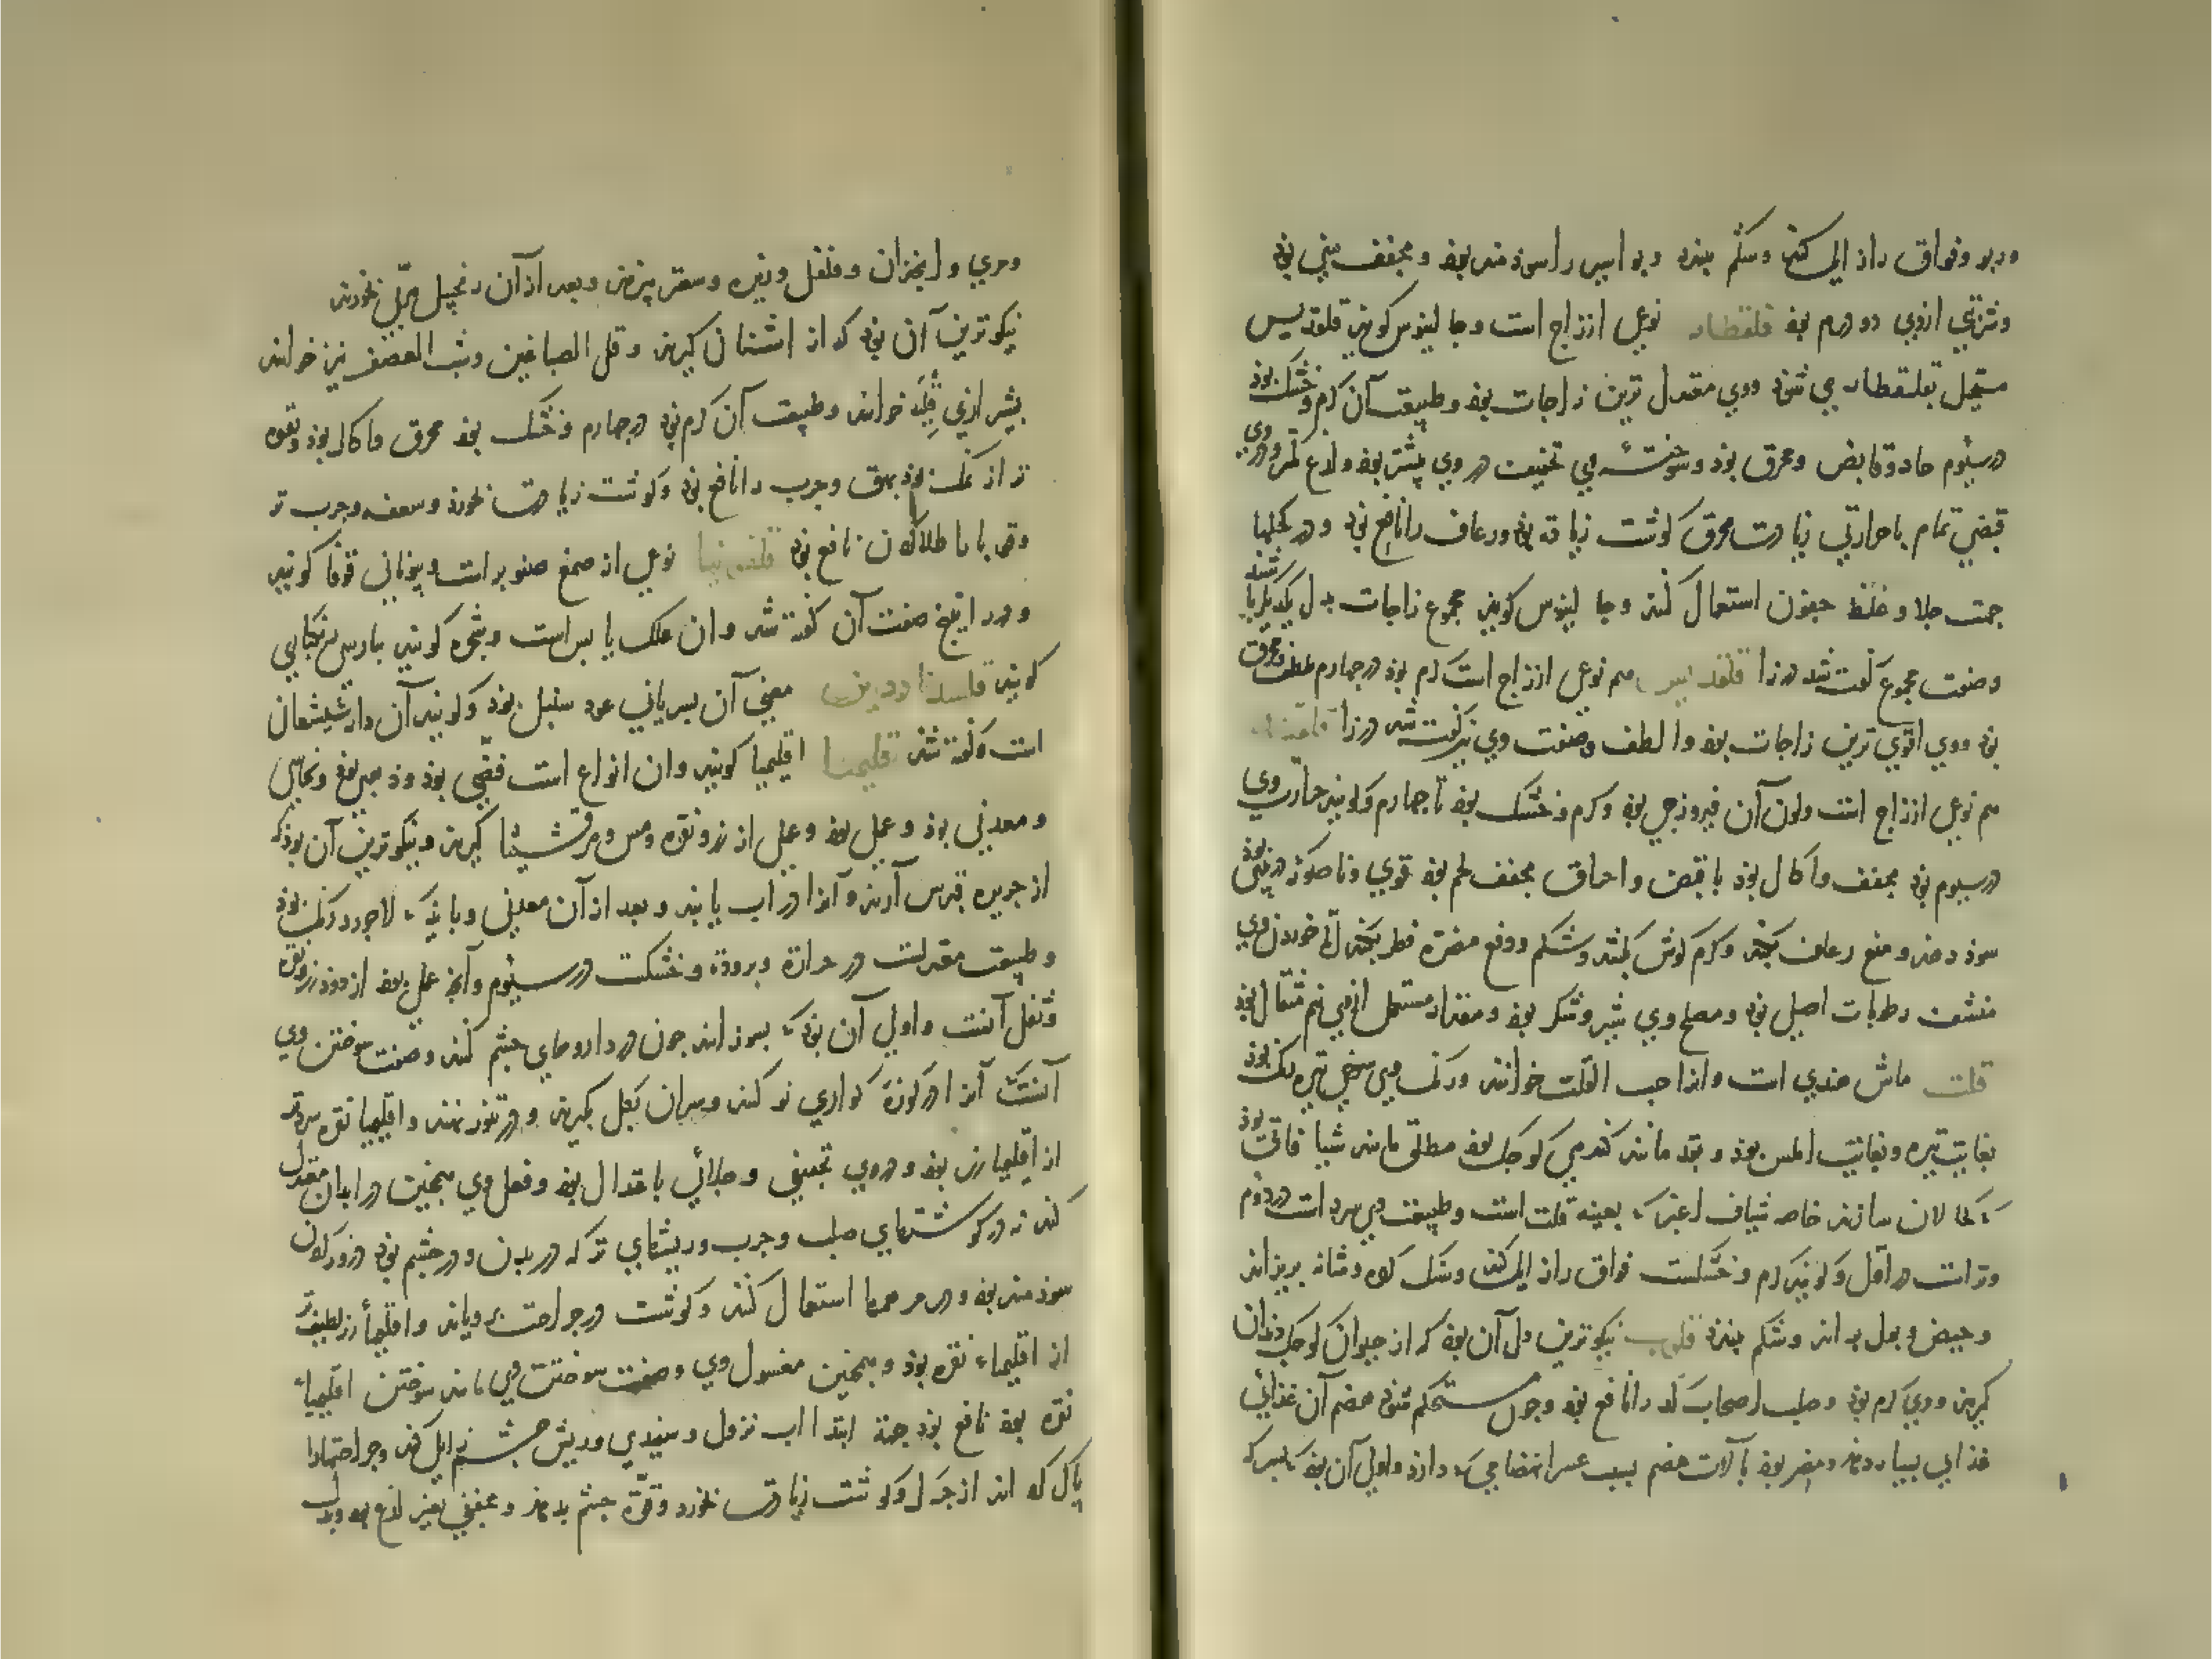 وربو وفواق را زایل کند و شکم ببندد و بواسیر را سودمند بود و مجفف منی بود
و شربتی ازوی دو درم بود قلقطار نوعی از زاج است و جالینوس کوید قلقدیس
مستحیل بقلقطار می شود و وی معتدل ترین زاجات بود و طبیعت آن کرم و خشک بود
در سیوم حاد و قابض و محرق بود و سوخته وی تجفیف در وی بیشتر بود و لذع کمتر و در وی
قبضی تمام با حرارتی زیادت محرق کوشت زیاده بود و رعاف را نافع بود و در کحلها
جهت جلا و غلظ جفون استعمال کنند و جالینوس کوید مجموع زاجات بدل یکدیکر باشند
و صفت مجموع کفته شد در زا قلقدیس هم نوعی از زاج است کرم بود در چهارم ملطف و محرق
بود و وی اقوی ترین زاجات بود و الطف و صفت وی نیز کفته شد در زا قلقند
هم نوعی از زاج است و لون آن فیروزجی بود و کرم و خشک بود تا چهارم و کویند حرارت وی
در سیوم بود مجفف و اکال بود با قبض و احراق مجفف لحم بود قوی و ناصور که در بینی بود
سود دهد و منع رعاف بکند و کرم کوش بکشد و شکم و دفع مضرة فطر بکند الا خوردن وی
منشف رطوبات اصلی بود و مصلح وی شیر و شکر بود و مقدار مستعمل از وی نیم مثقال بود
قلت ماش هندی است و انرا حب القلت خوانند و رنک وی سخی تیره رنک بود
بغایت تیره و بغایت املس بود و بقد مانند کندمی کوجک بود مطلق مانند شیافاتی بود
که کحالان سازند خاصه شیاف اغبر که بعینه قلت است و طبیعت وی سرد است در دوم
و تر است در اول و کویند کرم و خشکست فواق را زایل کند و سنک کرده و مثانه بریزاند
و حیض و بول براند و شکم ببندد قلوب نیکوترین دل آن بود که از حیوان کوجک دندان
کیرند و وی کرم بود و صلب اصحاب کد را نافع بود و جون مستحکم شود هضم آن غذائی
غذایی بسیار دهد و مضر بود بآلات هضم بسبب عسر انهضامی که دارد و اولی آن بود که بسرکه
و مری و انجدان و فلفل و زیره و سعتر بپزند و بعد از آن زنجبیل مربی بخورند
نیکوترین آن بود که از اشنان کیرند و قلی الصباغین و شب العصفر نیز خوانند
بشیرازی قلیه خوانند و طبیعت آن کرم بود در چهارم و خشک بود محرق و اکال بود و بقوه
تر از نمک بود بهق و جرب را نافع بود و کوشت زیادت بخورد و سعفه و جرب تر
و قوبا با طلا کردن نافع بود قلفونیا نوعی از صمغ صنوبر است و یونانی قوفا کویند
و در راتینج صفت آن کفته شد و آن علک یابس است و شجره کویند بپارسی زنکباری
کویند قلسدا ردین معنی آن بسریانی عود سنبل بود و کویند آن دارشیشعان
است و کفته شد قلیمیا اقلیمیا کویند و آن انواع است فضی بود و ذهبی بود و نحاسی
و معدنی بود و عملی بود و عملی از زر و نقره و مس و مرقشیشا کیرند و نیکوترین آن بود که
از جزیره قبرس آرند و آنرا در آب یابند و بعد از آن معدنی و باید که لاجورد رنک بود
و طبیعت معتدلست در حرارة و برودة و خشکست در سیوم و آنچه عملی بود از دود زر و نقره
و ثفل آنست و اولی آن بود که بسوزانند جون در داروهای چشم کنند و صفت سوختن وی
آنست که آنرا در کوزه کواری نو کنند و سر آن بکل بکیرند و در تنور نهند و اقلیمیا نقره سردتر
از اقلیمیا زر بود و در وی تجفیفی و جلائی باعتدال بود و فعل وی همچنین در ابدان معتدل
کند نه در کوشتهای صلب و جرب و ریشهای تر که در بدن و در چشم بود ذرور کردن
سودمند بود و در مرهمها استعمال کنند و کوشت در جراحت برویاند و اقلیمیاء زر لطیف تر
از اقلیمیاء نقره بود و همچنین مغسول وی و صفت سوختن وی مانند سوختن اقلیمیاء
نقره بود نافع بود جهة ابتدا آب نزول و سفیدی و ریش چشم زایل کند و جراحتها را
پاک کرداند از چرک و کوشت زیادت بخورد و قوة چشم بدهد و مجففی بغیر لذع بود و بدل